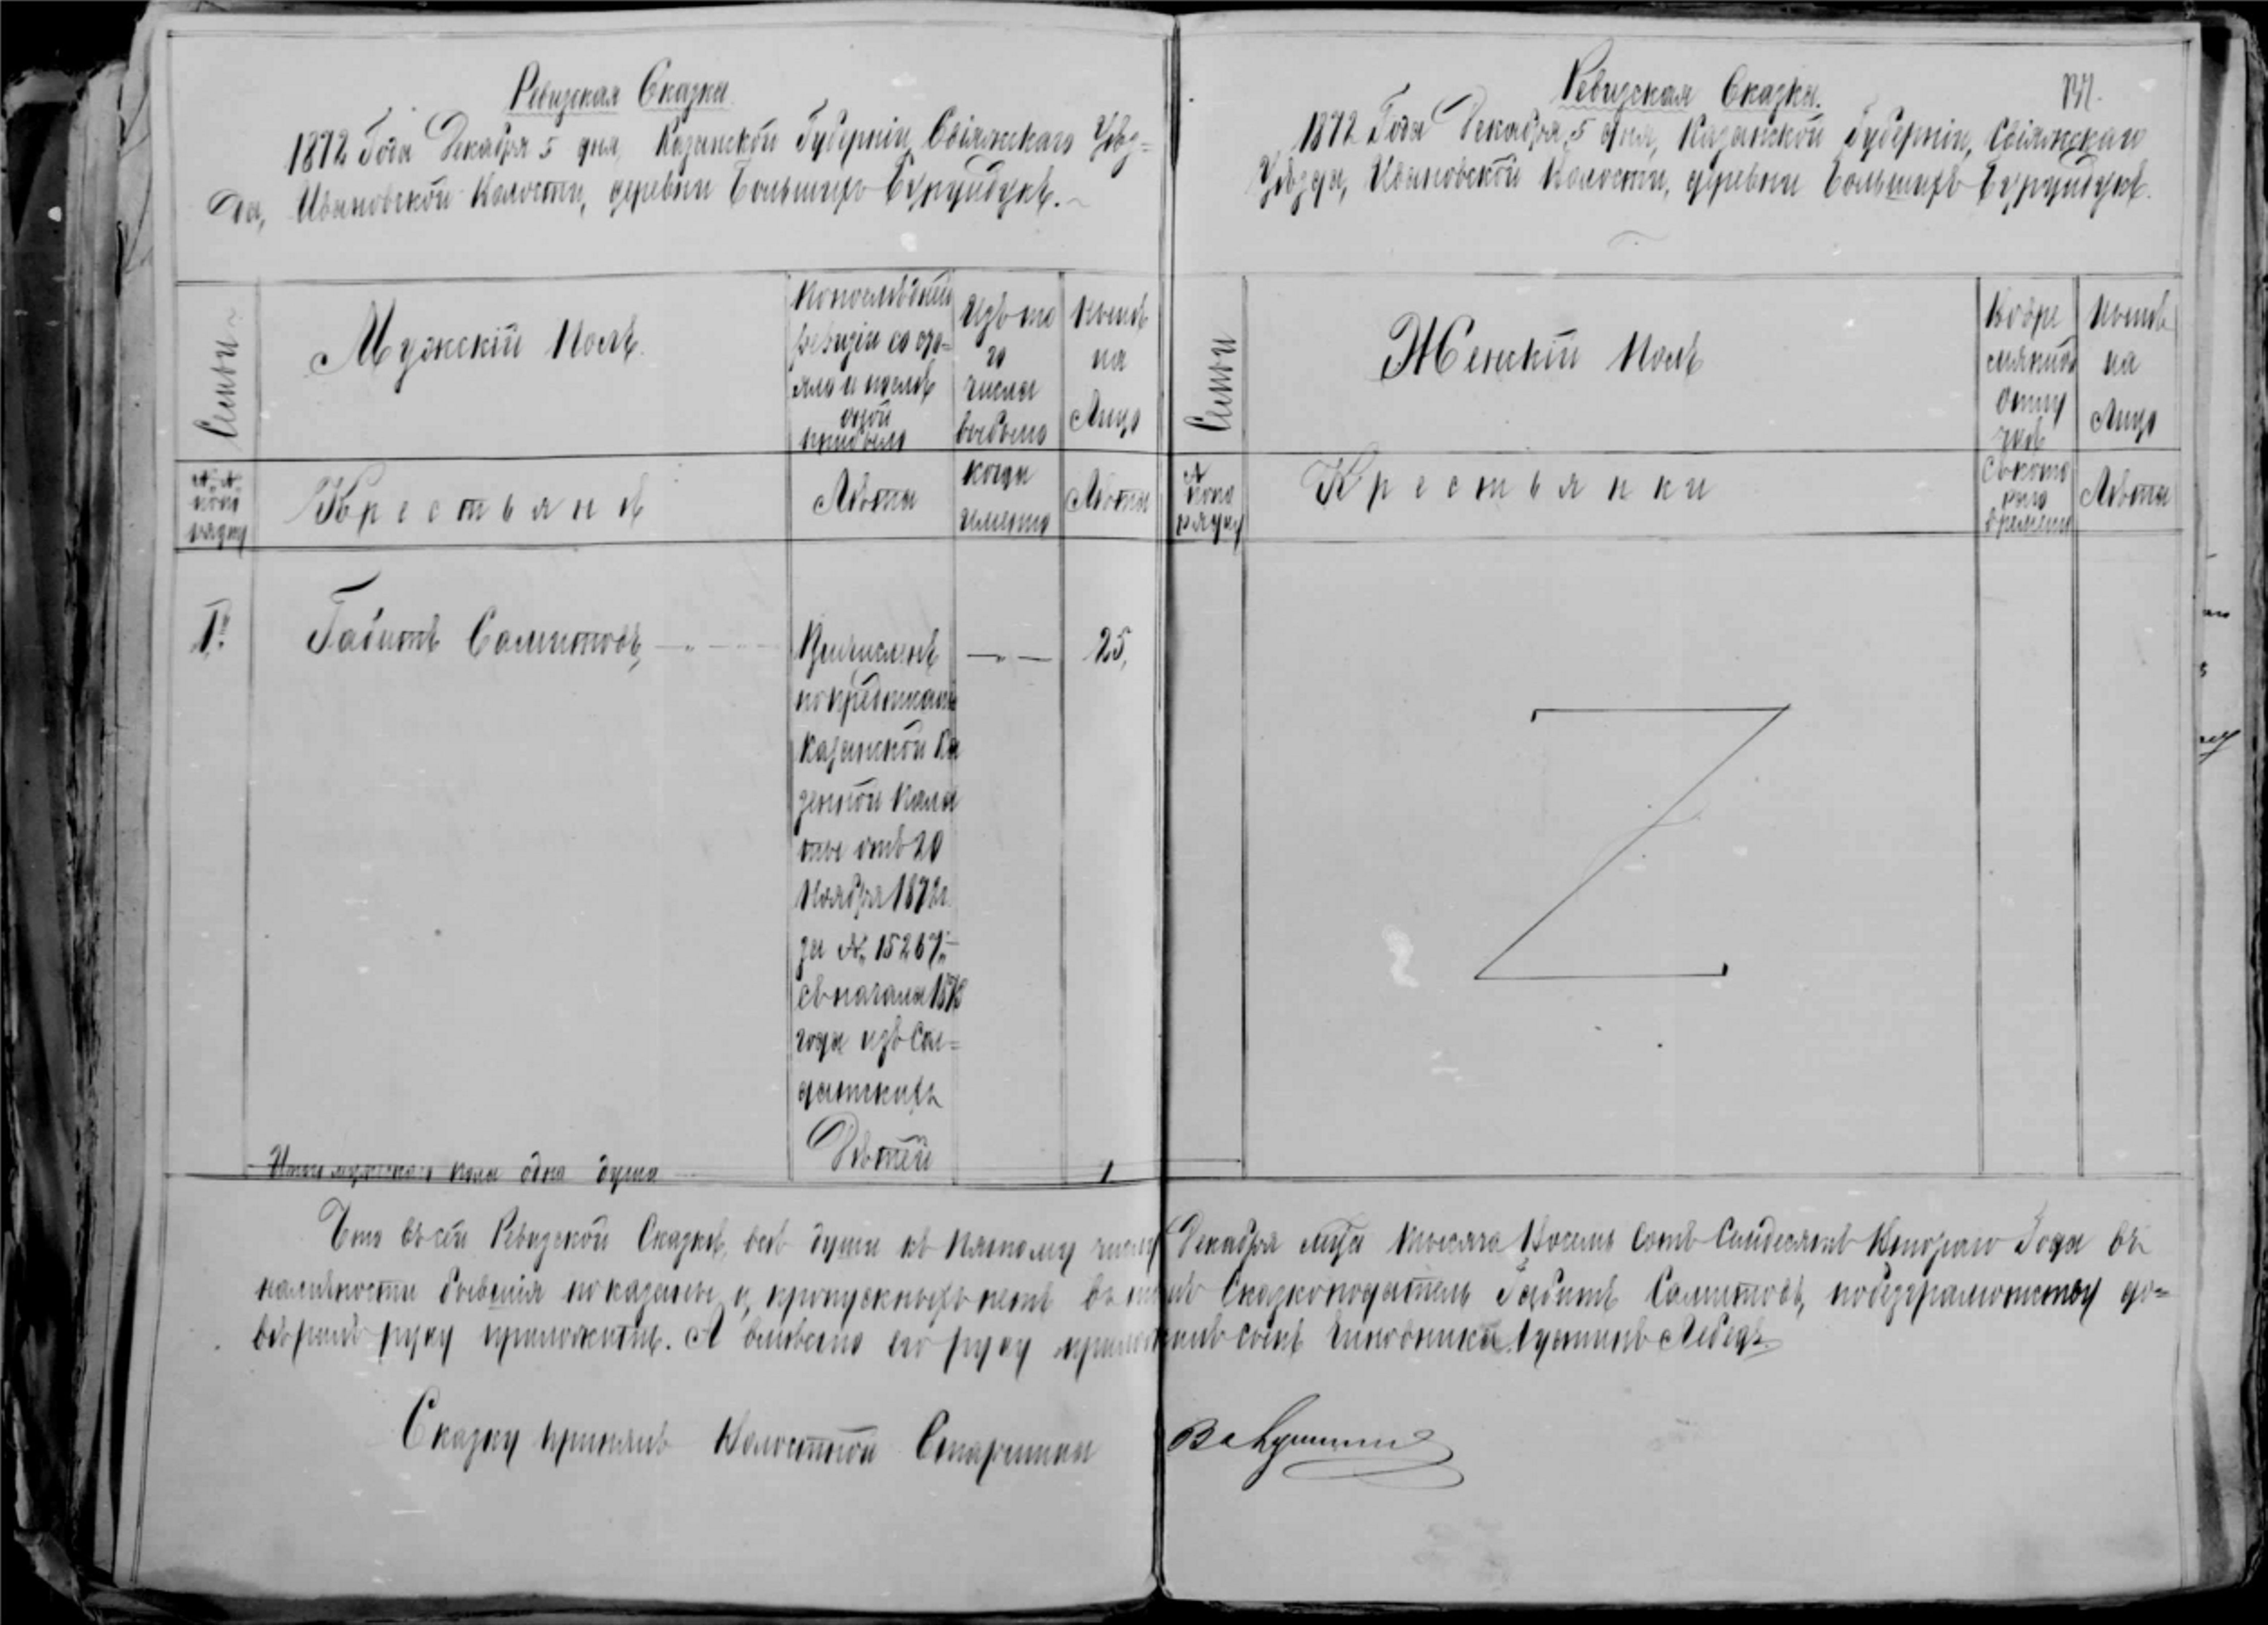 Ревизская Сказка
1872 Года Декабря 5 дня, Казанской Губерніи, Свіяжскаго Уѣз=
да, Ивановской Волости, деревни Большихъ Бурундукъ.
Семьи
Мужскій Полъ.
Попослѣдней
ревизіи состо=
яло и послѣ
оной
прибыло
Изъ то
го
числа
выбыло
Нынѣ
на
Лицо
№№
попо
рядку
Крестьянъ
Лѣта
когда
именно
Лѣта
1.
Габитъ Салитовъ,
Причисленъ
попредписанію
Казанской Ка
зенной Пала
ты отъ 20
Ноября 1872 г.
за № 15267
съ начала 1873
года изъ Сол=
датскихъ
Дѣтей
25,
Итого мужскаго пола одна душа
1
Ревизская Сказка.
1872 Года Декабря 5 дня, Казанской Губерніи, Свіяжскаго
Уѣзда, Ивановской Волости, деревни Большихъ Бурундукъ.
Семьи
Женскій Полъ
Вовре
мянной
отлу
чкѣ
Нынѣ
на
Лицо
№
попо
рядку
Крестьянки
Съкото
раго
времени
Лѣта
Что въ сей Ревизской Сказкѣ, всѣ души къ пятому числу Декабря мѣсяца тысяча Восемь Сотъ Семдесятъ Втораго Года въ
наличности показаны и пропускныхъ нетъ въ томъ Сказкоподатель Габитъ Салитовъ, побезграмотству до=
вѣрилъ руку приложить. А вмѣсто его руку приложилъ сынъ Чиновника Лебедь.
Сказку принялъ Волостной Старшина